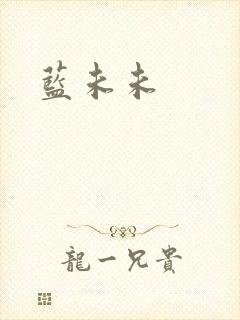 藍未未
龍一兄貴